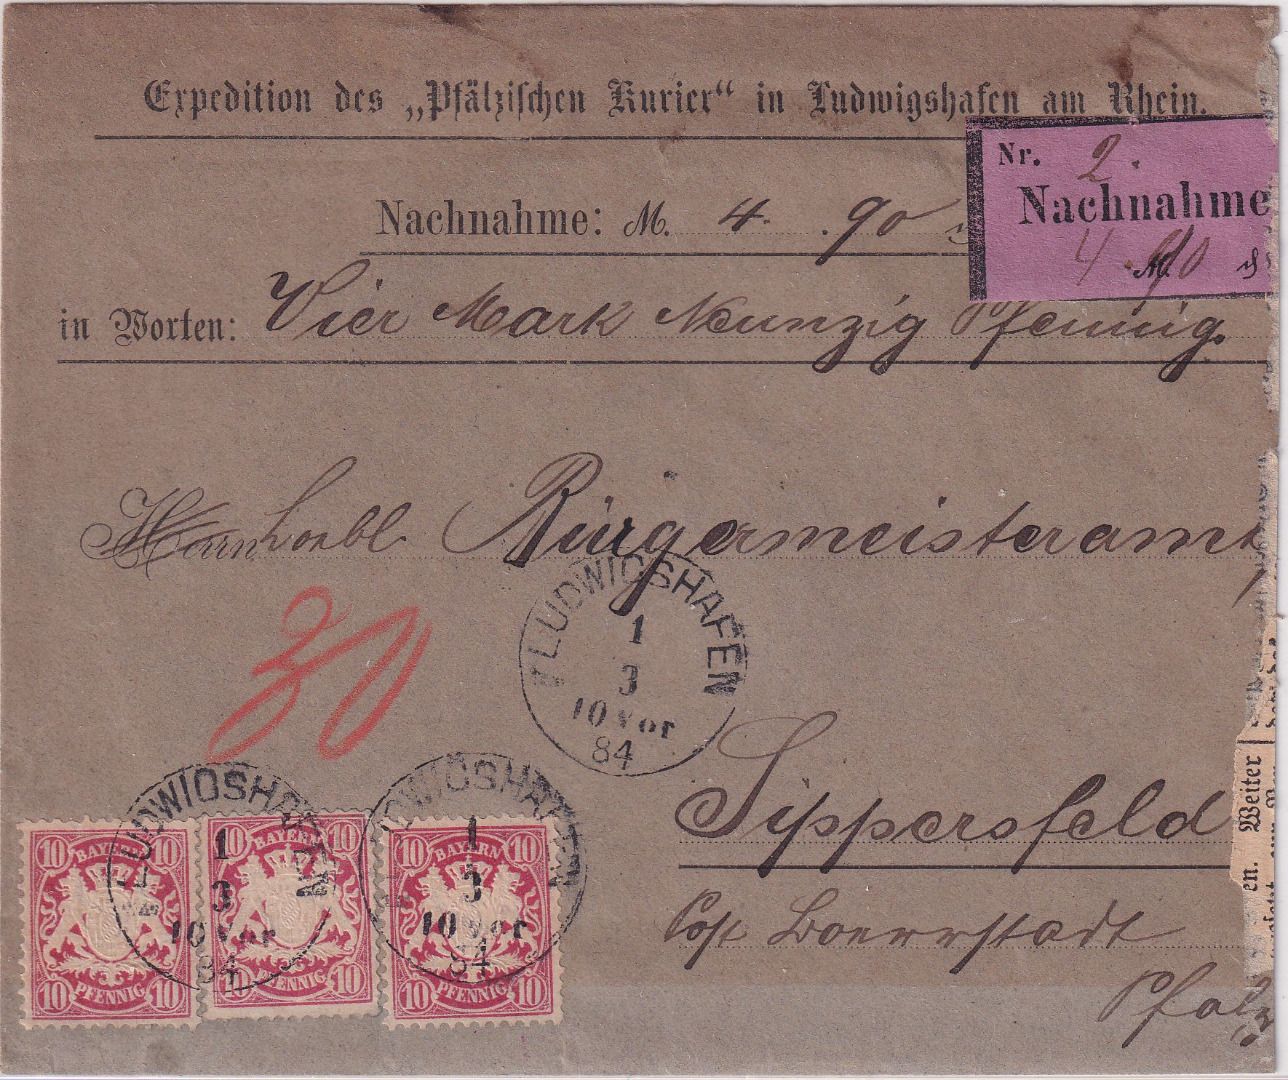 Expedition des „Pfälzischen Kurier“ in Ludwigshafen am Rhein.
Nr. 2.
Nachnahme
4 M. 90 ₰
Nachnahme: M. 4. 90
in Worten: Vier Mark Neunzig Pfennig.
Bürgermeisteramt
30
LUDWIGSHAFEN
1
3
10 Vor
84
Sippersfeld
Post
Pfalz
en. Weiter
LUDWIGSHAFEN
1
3
10 Vor
84
LUDWIGSHAFEN
1
3
10 Vor
84
10 BAYERN 10
10 PFENNIG 10
10 BAYERN 10
10 PFENNIG 10
10 BAYERN 10
10 PFENNIG 10